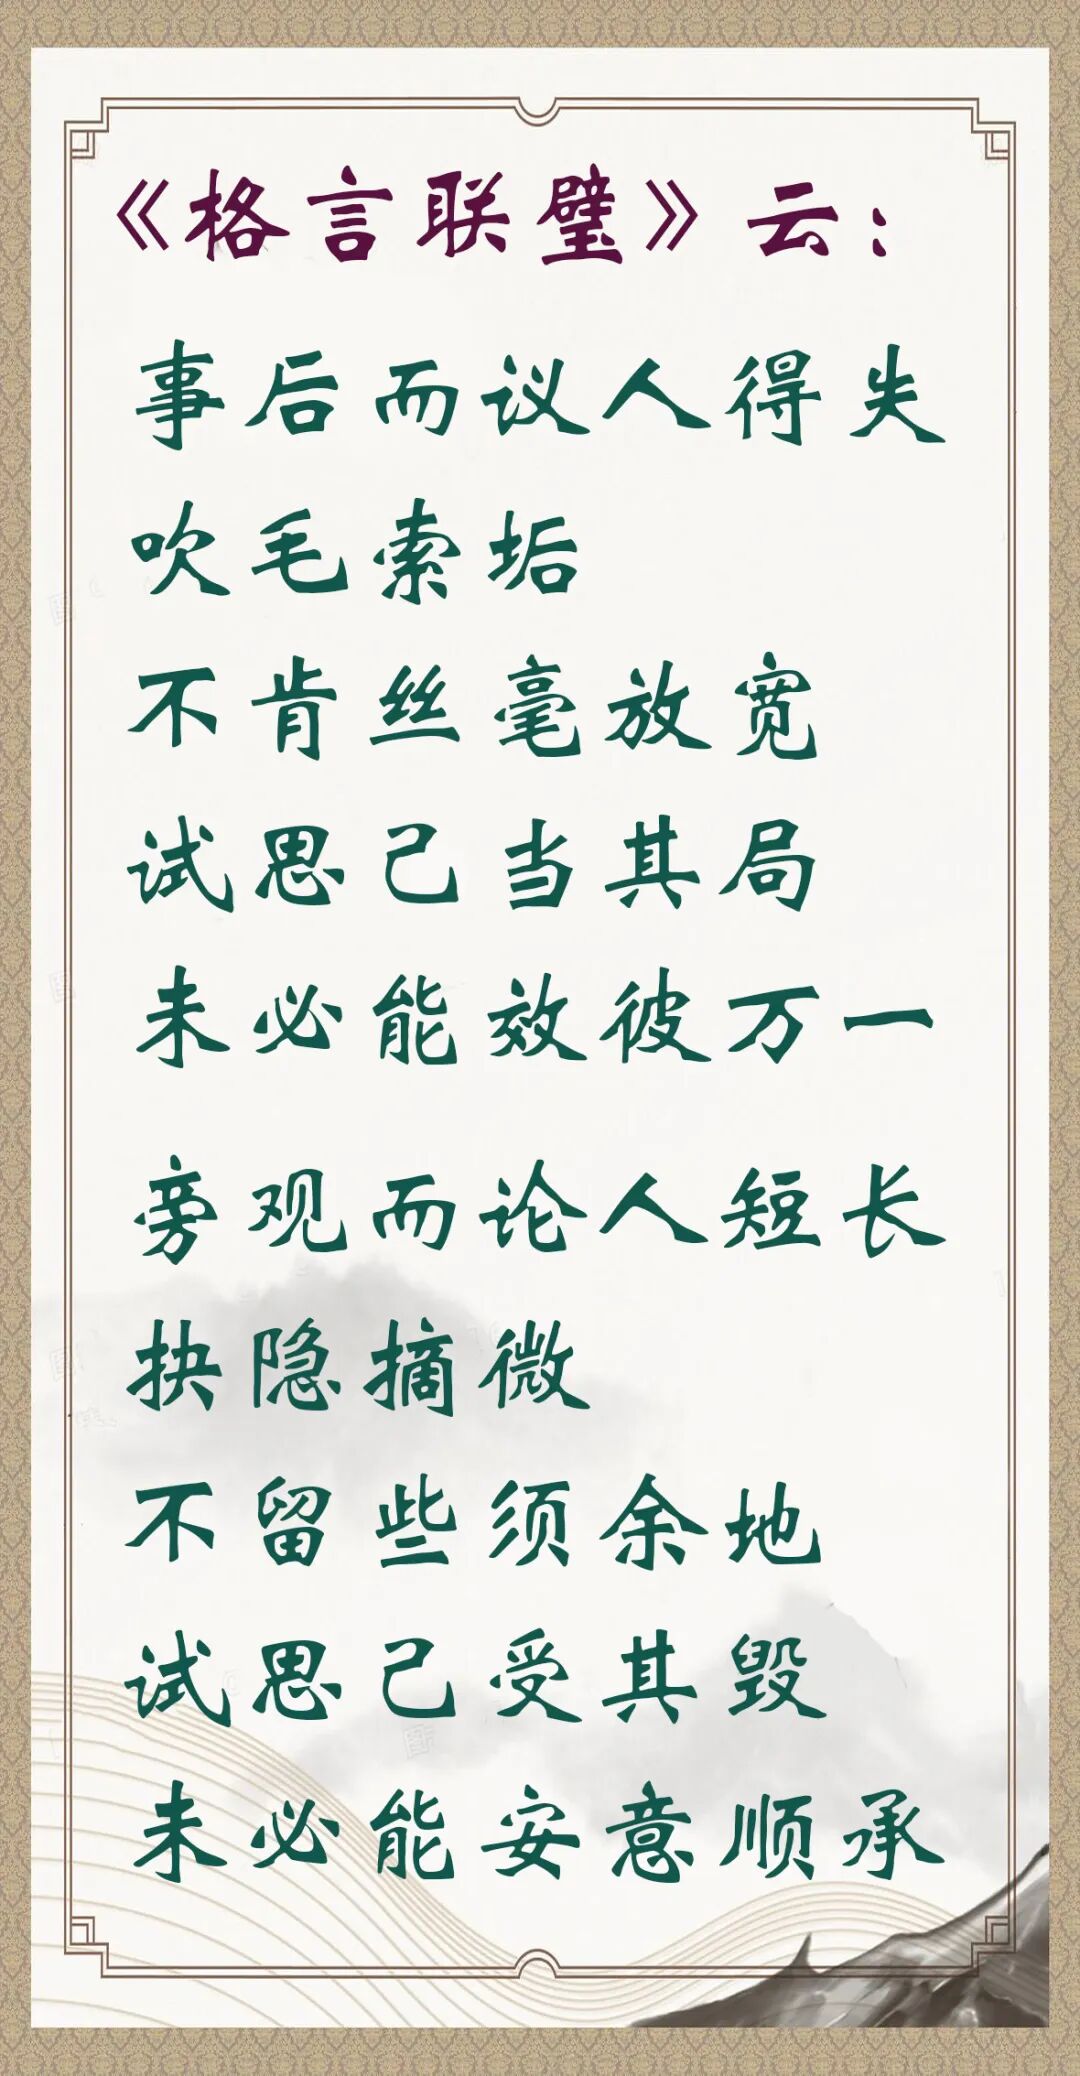 《格言联璧》云：
事后而议人得失
吹毛索垢
不肯丝毫放宽
试思己当其局
未必能效彼万一
旁观而论人短长
抉隐摘微
不留些须余地
试思己受其毁
未必能安意顺承